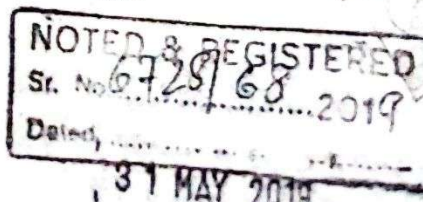 NOTED & REGISTERED
Sr. No 6728/68 2019
Dated,
31 MAY 2019